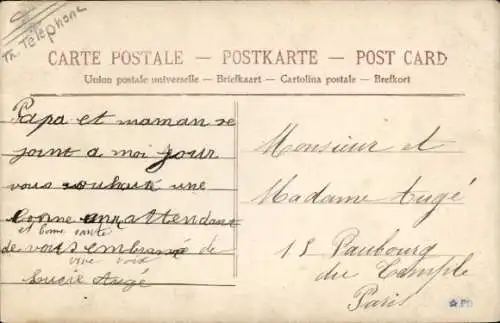 Th. Téléphone
CARTE POSTALE – POSTKARTE – POST CARD
Union postale universelle – Briefkaart – Cartolina postale – Brefkort
Papa et maman se
joint a moi pour
vous souhait une
bonne ann attendant
et bone santé
de vous embrassé de
vive voix
Lucie Augé
Monsieur et
Madame Augé
15 Faubourg
du Temple
Paris
PD